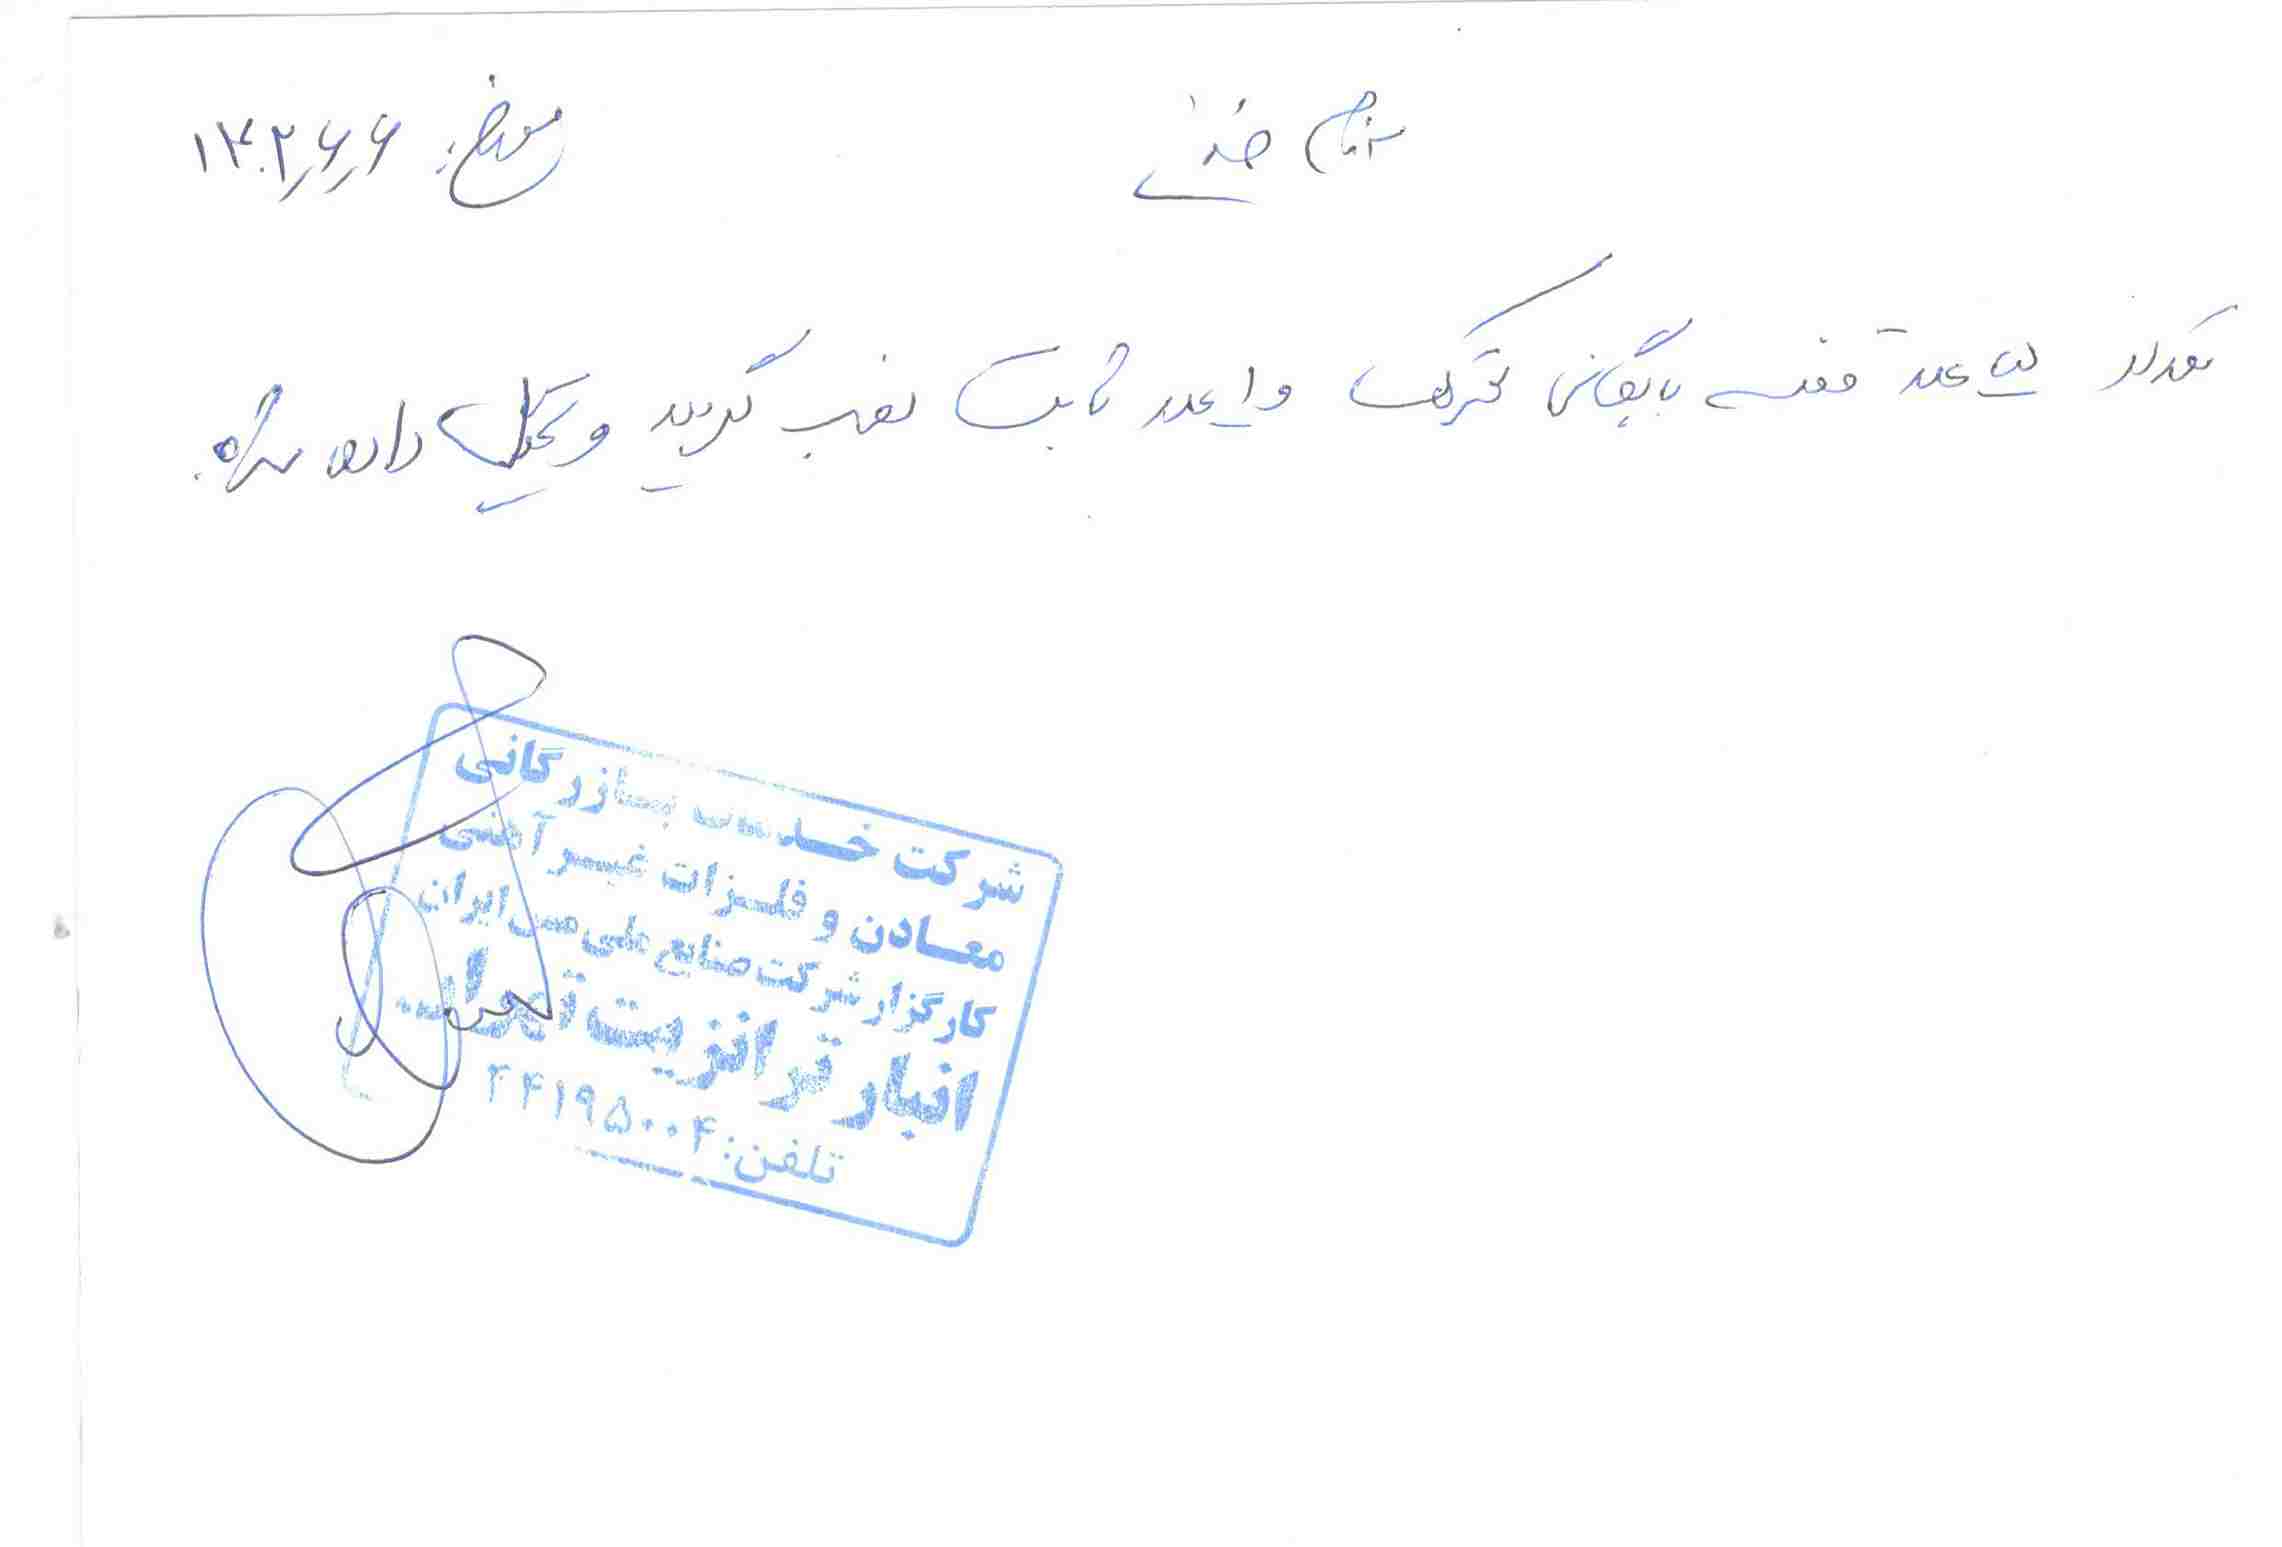 بنام خدا
مورخ: ۱۴۰۲/۶/۶
تعداد عدد قفسه بایگانی متحرک و ۱ عدد ثابت نصب گردید و تحویل داده شد.
شرکت خدمات بازرگانی
معادن و فلزات غیر آهنی
کارگزار شرکت صنایع ملی مس ایران
انبار ترانزیت تهران
تلفن: ۳۴۱۹۵۰۰۴